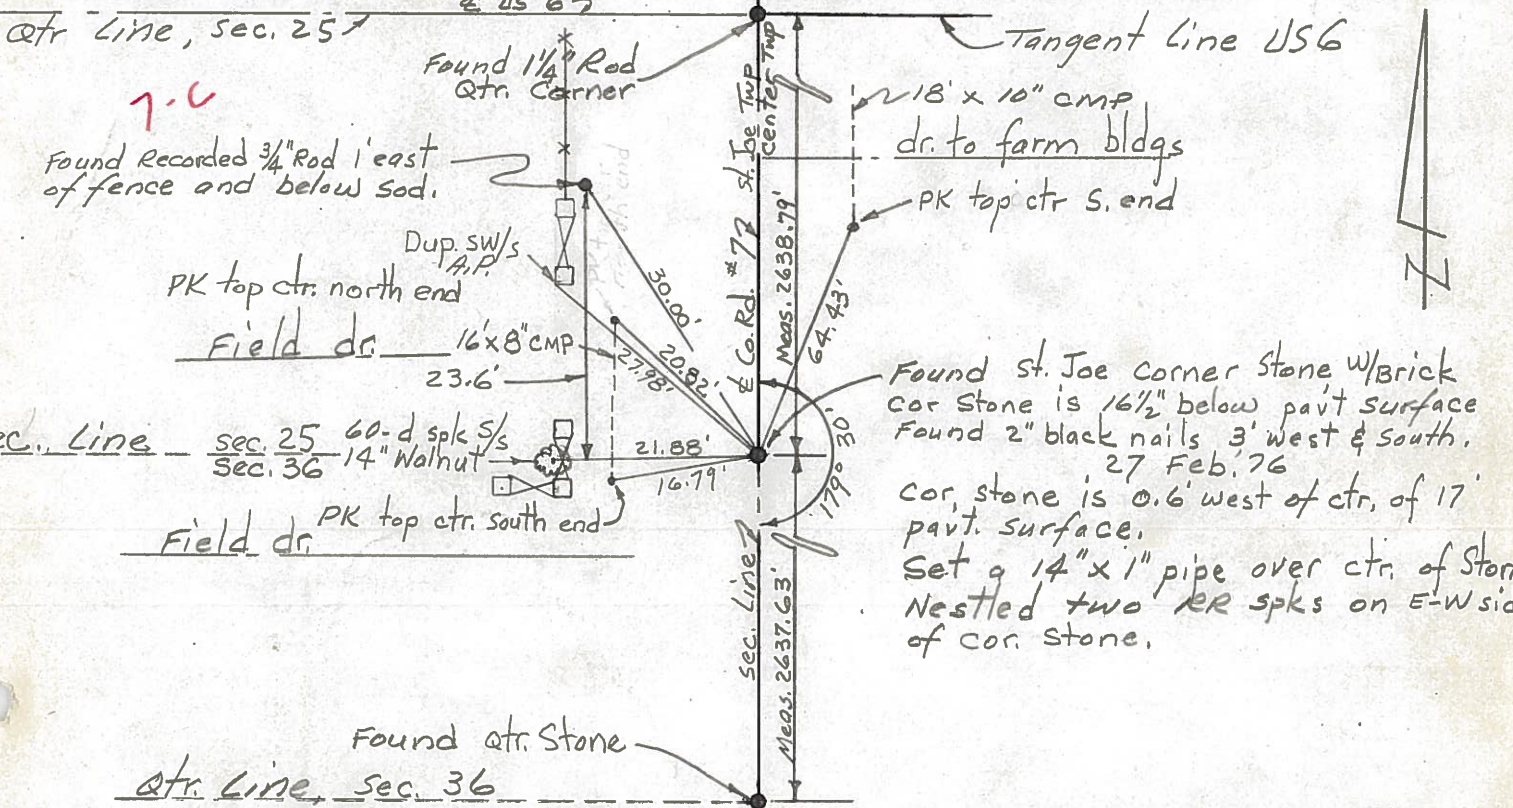 Qtr Line, Sec. 25
Tangent Line US6
Found 1¼" Rod
Qtr. Corner
St. Joe Twp
Center Twp
18' x 10" CMP
dr. to farm bldgs
Found Recorded ¾" Rod 1' east
of fence and below sod.
PK top ctr S. end
Dup. SW/s
A.P.
PK top ctr. north end
30.00'
℄ Co. Rd. #77
Meas. 2638.79'
64.43'
Field dr.
16'x8" CMP
23.6'
20.82'
27.98'
Found St. Joe Corner Stone W/Brick
Cor Stone is 16½" below pav't surface
Found 2" black nails 3' west & South.
27 Feb. '76
Cor. stone is 0.6' west of ctr. of 17'
pav't. surface.
Set a 14" x 1" pipe over ctr. of
Nestled two RR spks on E-W
of cor. stone.
Line
Sec. 25
Sec. 36
60-d spk S/s
14" Walnut
21.88'
16.79'
179° 30'
PK top ctr. south end
Field dr.
Sec. Line
Meas. 2637.63'
Found Qtr. Stone
Qtr. Line, Sec. 36
N